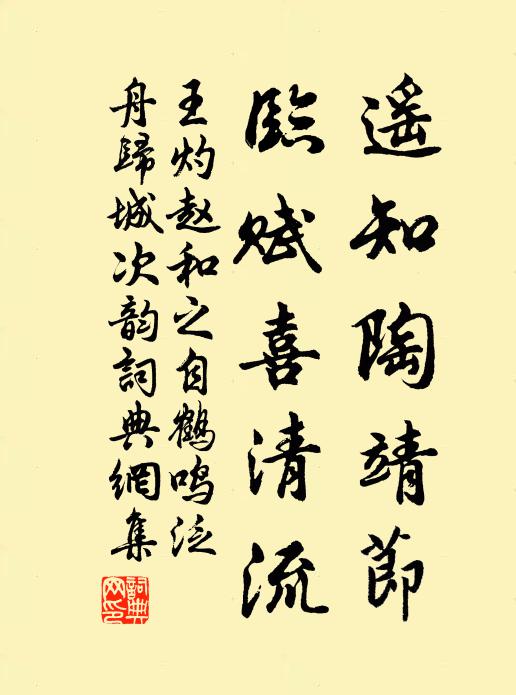 遥知陶靖節
臨賦喜清流
王灼赵和之自鶴鸣泛
舟歸城次韵詞典網集
詞典网印